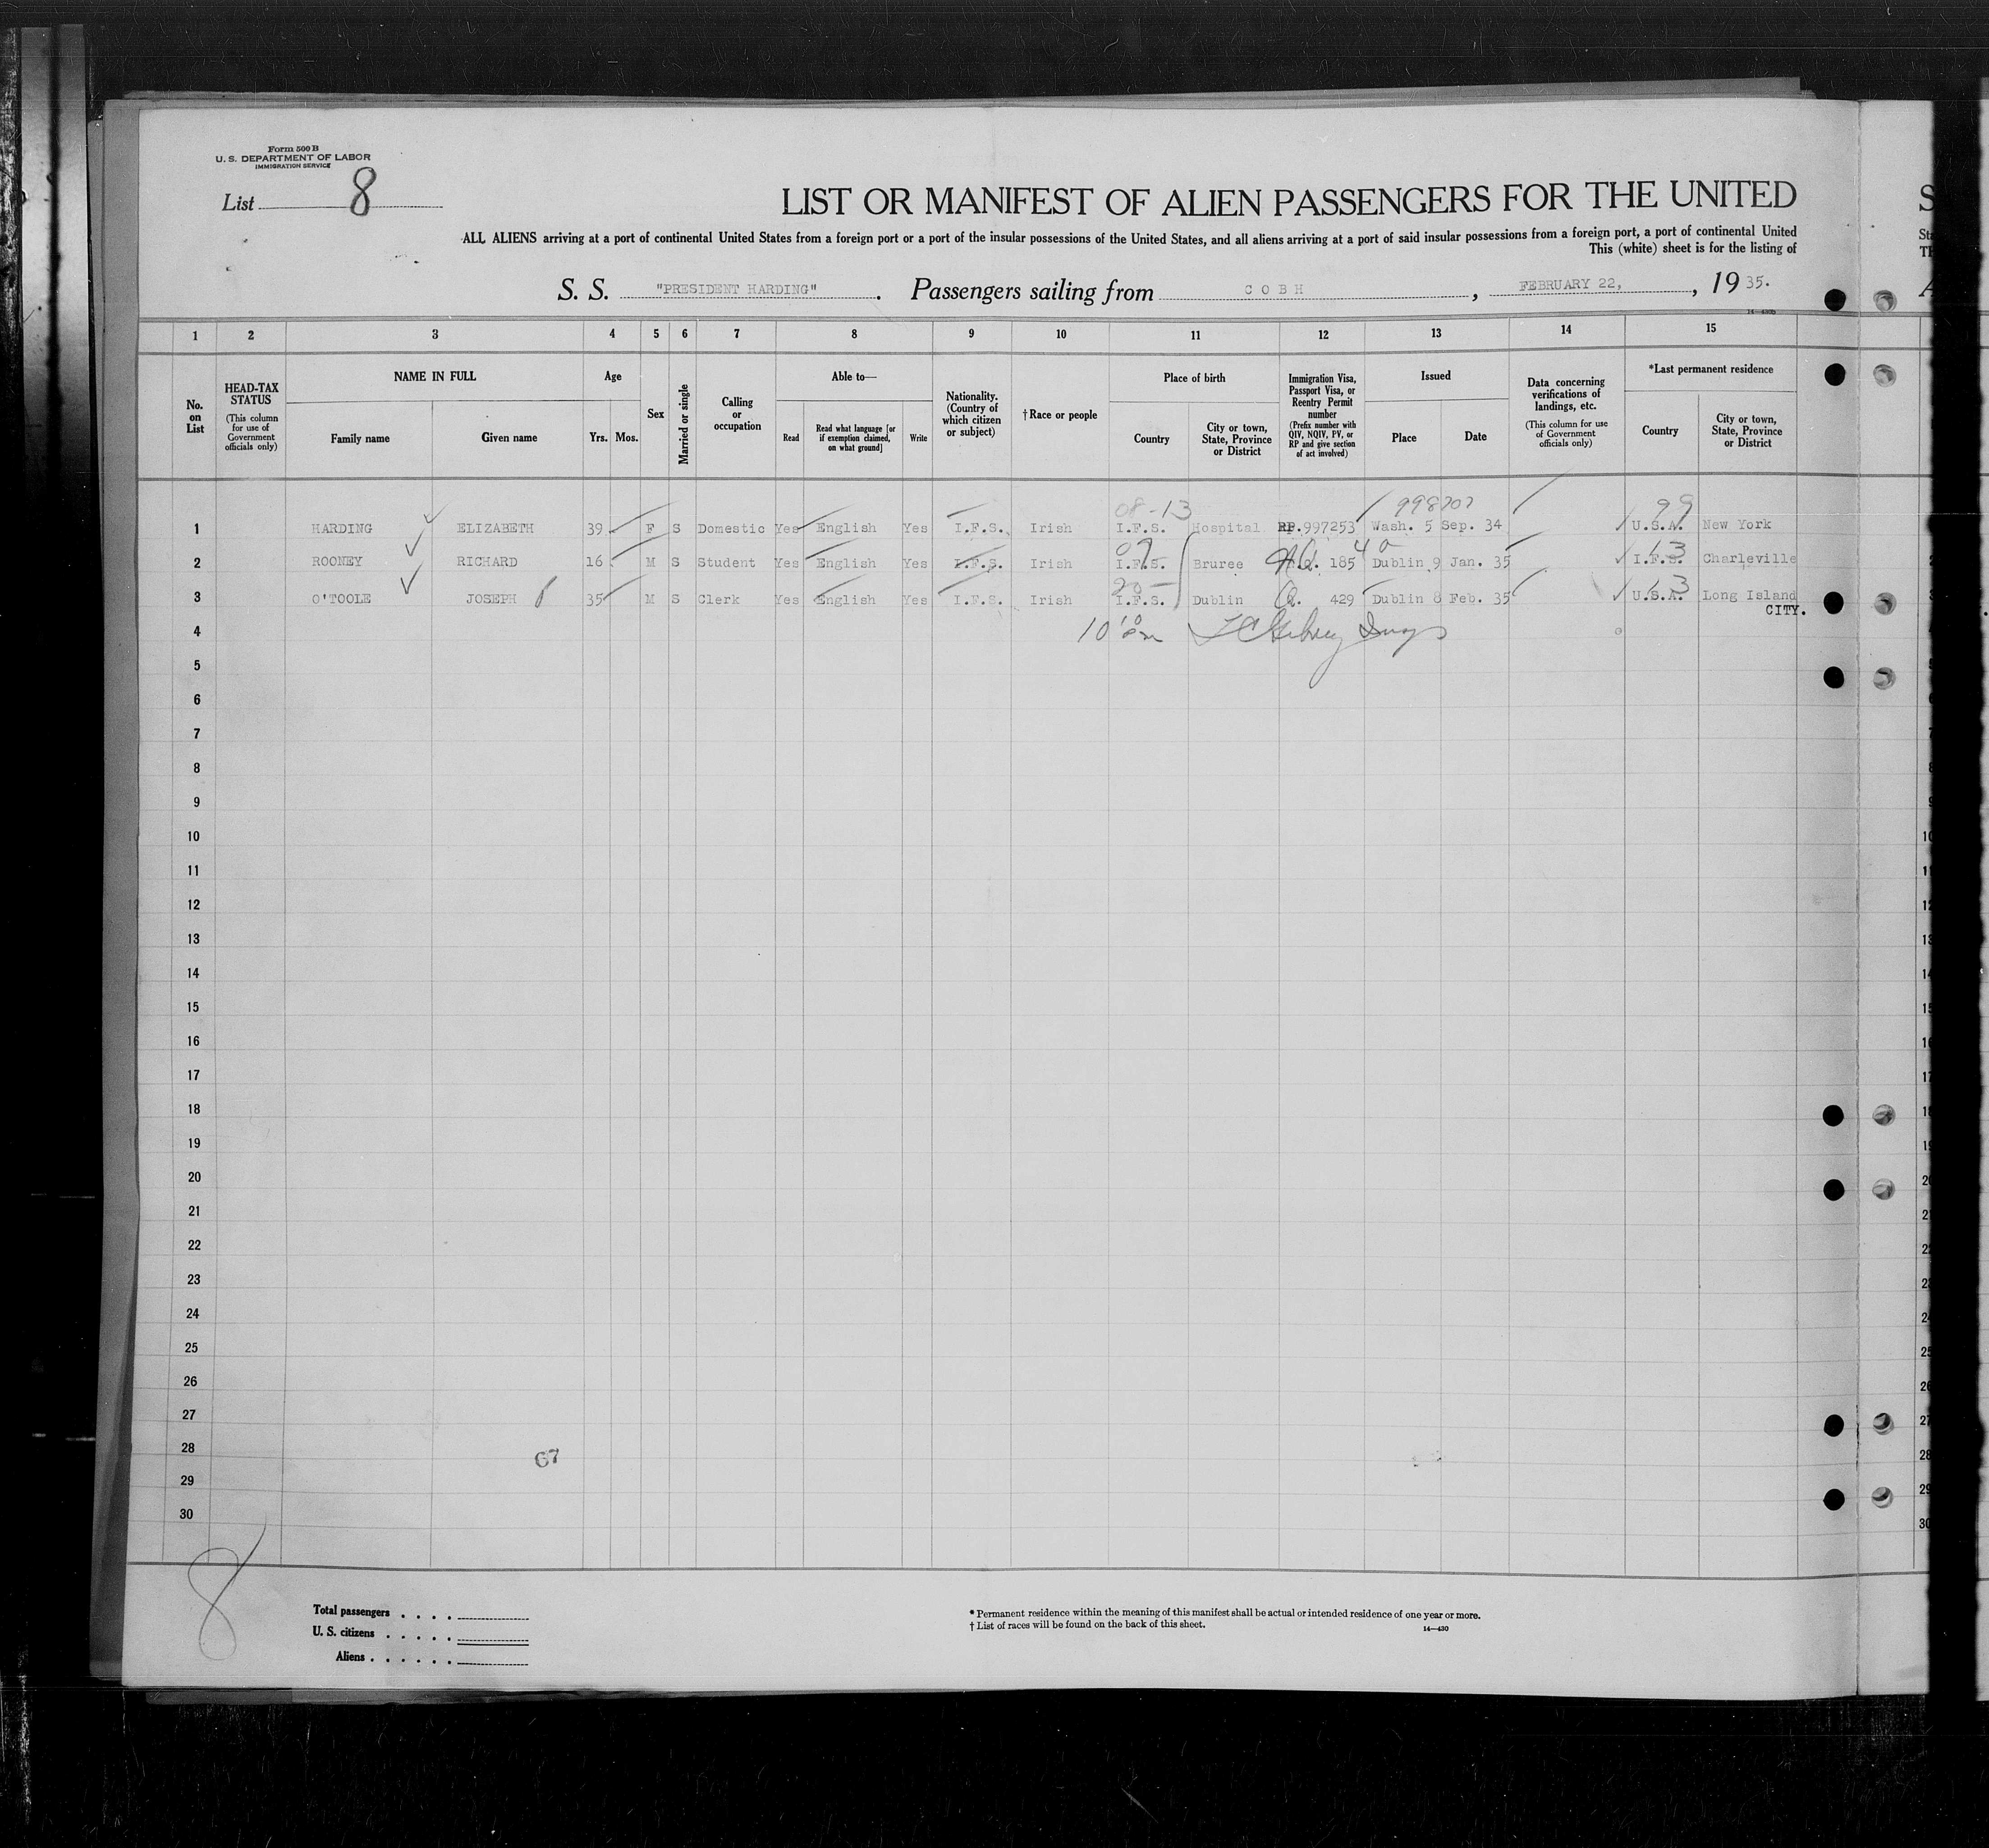 Form 500 B
U. S. DEPARTMENT OF LABOR
IMMIGRATION SERVICE
List 8
LIST OR MANIFEST OF ALIEN PASSENGERS FOR THE UNITED
ALL ALIENS arriving at a port of continental United States from a foreign port or a port of the insular possessions of the United States, and all aliens arriving at a port of said insular possessions from a foreign port, a port of continental United
This (white) sheet is for the listing of
S. S. "PRESIDENT HARDING". Passengers sailing from COBH, FEBRUARY 22, , 1935.
1 2 3 4 5 6 7 8 9 10 11 12 13 14 15
No. on List
HEAD-TAX STATUS (This column for use of Government officials only)
NAME IN FULL
Family name Given name
Age
Yrs. Mos.
Sex
Married or single
Calling or occupation
Able to—
Read
Read what language [or if exemption claimed, on what ground]
Write
Nationality. (Country of which citizen or subject)
†Race or people
Place of birth
Country
City or town, State, Province or District
Immigration Visa, Passport Visa, or Reentry Permit number (Prefix number with QIV, NQIV, PV, or RP and give section of act involved)
Issued
Place Date
Data concerning verifications of landings, etc. (This column for use of Government officials only)
*Last permanent residence
Country
City or town, State, Province or District
08-13 998707 99
1 HARDING ELIZABETH 39 F S Domestic Yes English Yes I.F.S. Irish I.F.S. Hospital RP.997253 Wash. 5 Sep. 34 U.S.A. New York
07 4a 13
2 ROONEY RICHARD 16 M S Student Yes English Yes I.F.S. Irish I.F.S. Bruree 185 Dublin 9 Jan. 35 I.F.S. Charleville
20 13
3 O'TOOLE JOSEPH 35 M S Clerk Yes English Yes I.F.S. Irish I.F.S. Dublin Q. 429 Dublin 8 Feb. 35 U.S.A. Long Island
CITY.
4
5
6
7
8
9
10
11
12
13
14
15
16
17
18
19
20
21
22
23
24
25
26
27
28
67
29
30
8
Total passengers
U. S. citizens
Aliens
* Permanent residence within the meaning of this manifest shall be actual or intended residence of one year or more.
† List of races will be found on the back of this sheet.
14—430